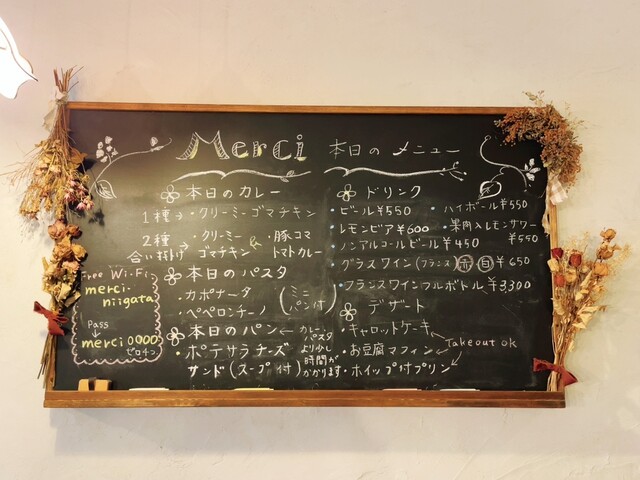 Merci 本日の メニュー
本日のカレー
1種→・クリーミーゴマチキン
2種→ ・クリーミー & ・豚コマ
合い掛け ゴマチキン トマトカレー
本日のパスタ
・カポナータ
・ペペロンチーノ
(ミニパン付)
本日のパン ← カレー、
パスタ
より少し
時間が
かかります
・ポテサラチーズ
サンド(スープ付)
ドリンク
・ビール¥550 ・ハイボール¥550
・レモンビア¥600 ・果肉入レモンサワー
¥550
・ノンアルコールビール¥450
・グラスワイン(フランス)赤 白 ¥650
・フランスワインフルボトル ¥3,300
デザート
・キャロットケーキ
・お豆腐マフィン
・ホイップ付プリン
Takeout ok
Free Wi-Fi
merci-
niigata
Pass
↓
merci0000
ゼロヨン